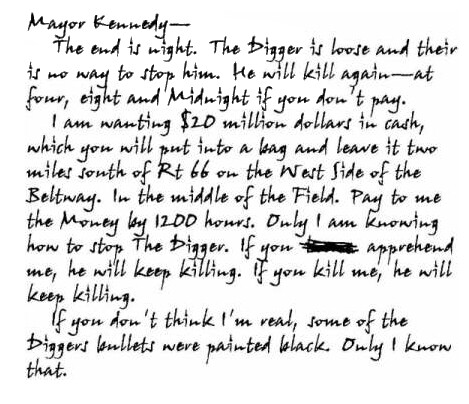 Mayor Kennedy—
The end is night. The Digger is loose and their
is no way to stop him. He will kill again—at
four, eight and Midnight if you don't pay.
I am wanting $20 million dollars in cash,
which you will put into a bag and leave it two
miles south of Rt 66 on the West Side of the
Beltway. In the middle of the Field. Pay to me
the Money by 1200 hours. Only I am knowing
how to stop The Digger. If you apprehend
me, he will keep killing. If you kill me, he will
keep killing.
If you don't think I'm real, some of the
Diggers bullets were painted black. Only I know
that.